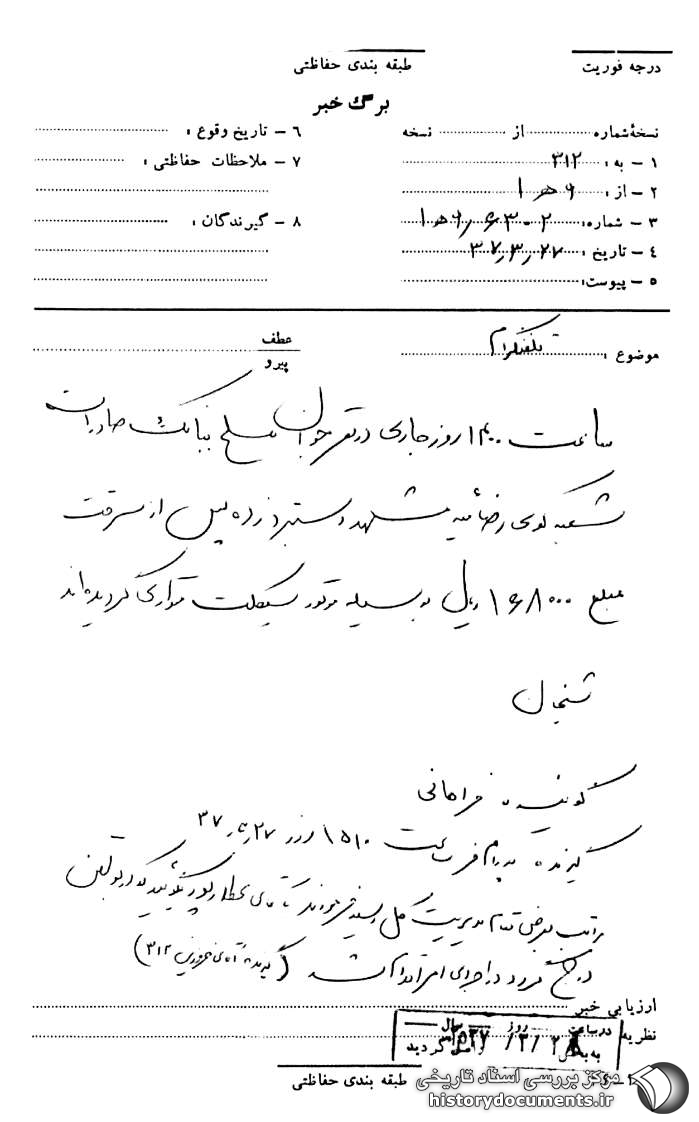 درجه فوریت
طبقه بندی حفاظتی
برگ خبر
نسخهٔ شماره از نسخه
۱ - به : ۳۱۲
۲ - از : ۹ هـ ۱
۳ - شماره: ۹ هـ ۱
۴ - تاریخ : ۳۷٫۳٫۲۷
۵ - پیوست:
۶ - تاریخ وقوع :
۷ - ملاحظات حفاظتی :
۸ - گیرندگان :
موضوع : تلفنگرام
عطف
پیرو
ساعت ۱۴۰۰ روز جاری دو نفر جوان مسلح ببانک صادرات
شعبه کوی رضائیه مشهد دستبرد زده پس از سرقت
مبلغ ۱۶۸۰۰۰ ریال بوسیله موتور سیکلت متواری گردیده‌اند
شیخان
گوینده فراهانی
گیرنده ساعت ۱۵۱۰ روز ۳۷
مراتب بعرض مقام مدیریت کل رسید فرمودند به آقای عطارپور بگوئید که در بولتن
درج گردد در اجرای امر اقدام شد (گیرنده آقای ۳۱۲)
ارزیابی خبر
نظریه
در ساعت روز سال
۲۵۳۷/۳/۲۸
به بخش واصل گردید
طبقه بندی حفاظتی
مرکز بررسی اسناد تاریخی
historydocuments.ir